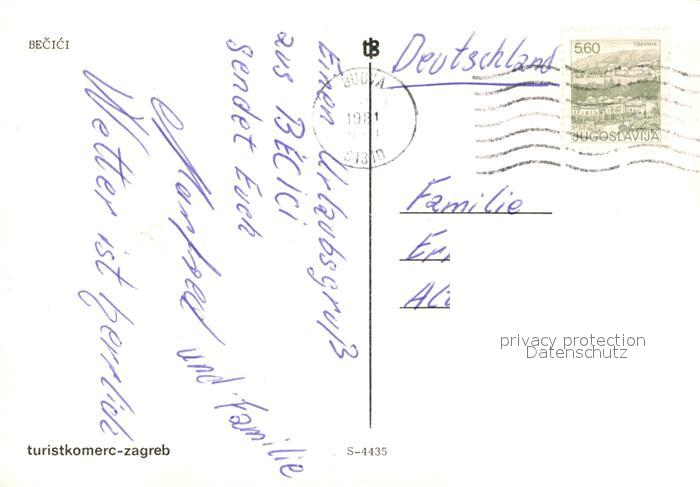 BEČIĆI
Einen Urlaubsgruß
aus BEČICI
sendet Euch
Manfred und Familie
Wetter ist herrlich
turistkomerc-zagreb
S-4435
tB
BUDVA
1981
81310
5,60
TRAVNIK
JUGOSLAVIJA
Deutschland
Familie
privacy protection
Datenschutz